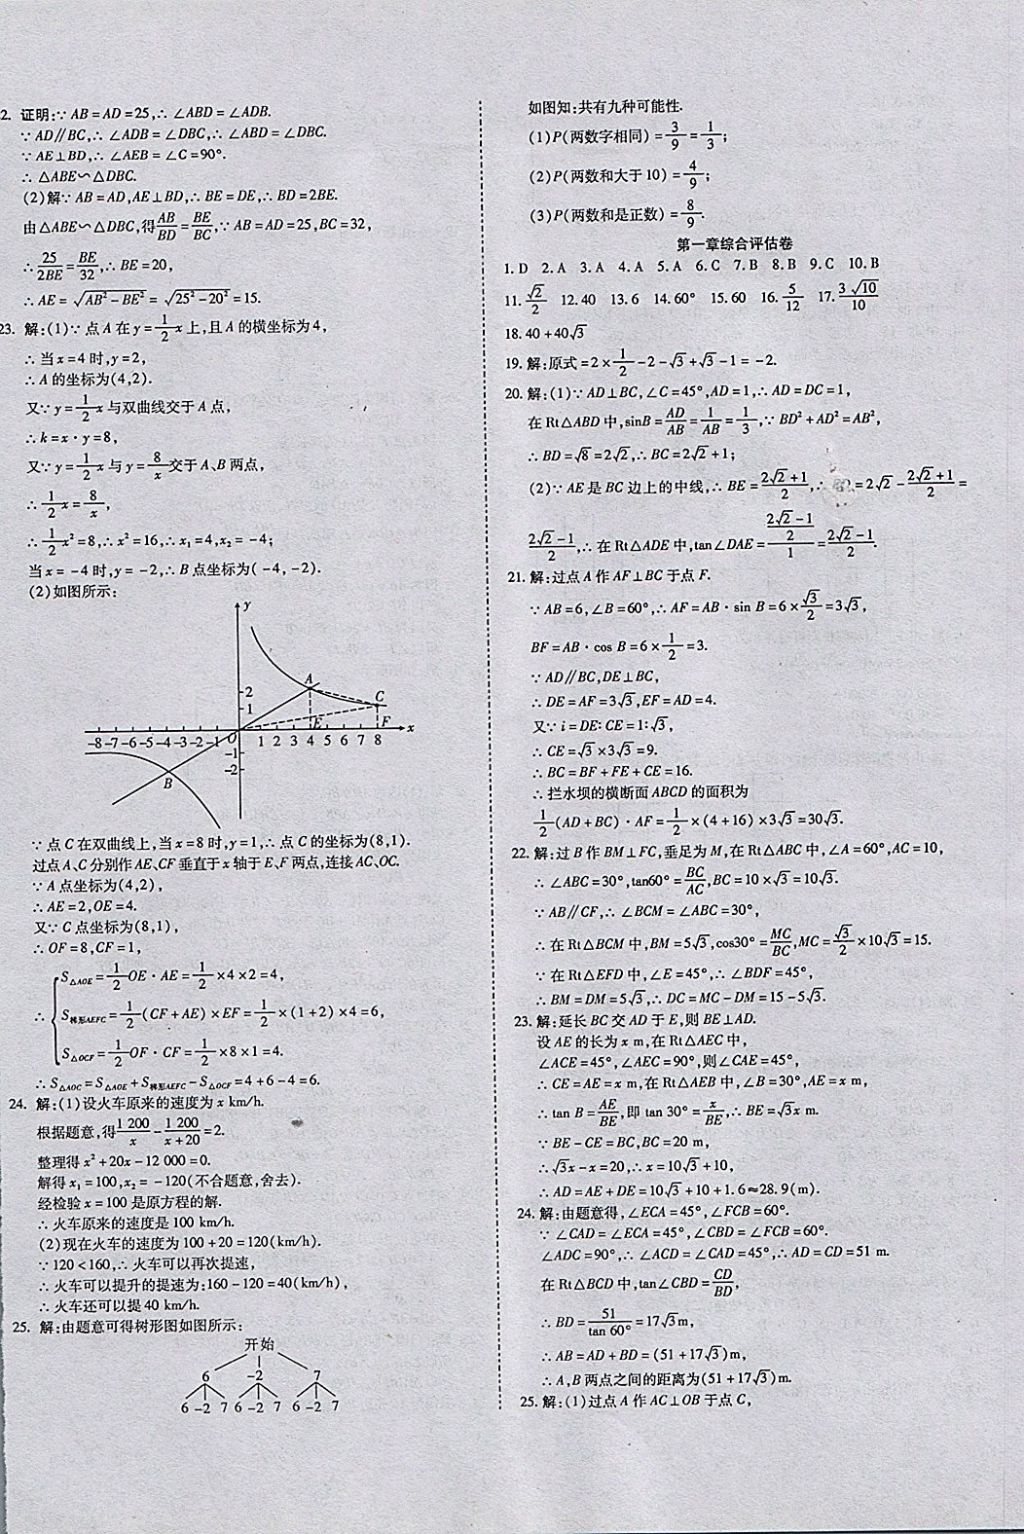 2. 证明:∵AB=AD=25,∴∠ABD=∠ADB.
∵AD∥BC,∴∠ADB=∠DBC,∴∠ABD=∠DBC.
∵AE⊥BD,∴∠AEB=∠C=90°.
∴△ABE∽△DBC.
(2)解∵AB=AD,AE⊥BD,∴BE=DE,∴BD=2BE.
由△ABE∽△DBC,得AB/BD=BE/BC,∵AB=AD=25,BC=32,
∴25/2BE=BE/32,∴BE=20,
∴AE=√(AB²-BE²)=√(25²-20²)=15.
23. 解:(1)∵点A在y=1/2x上,且A的横坐标为4,
∴当x=4时,y=2,
∴A的坐标为(4,2).
又∵y=1/2x与双曲线交于A点,
∴k=x·y=8,
又∵y=1/2x与y=8/x交于A、B两点,
∴1/2x=8/x,
∴1/2x²=8,∴x²=16,∴x₁=4,x₂=-4;
当x=-4时,y=-2,∴B点坐标为(-4,-2).
(2)如图所示:
y
A
C
2
1
E
F
x
-8 -7 -6 -5 -4 -3 -2 -1 O 1 2 3 4 5 6 7 8
-1
-2
B
∵点C在双曲线上,当x=8时,y=1,∴点C的坐标为(8,1).
过点A、C分别作AE、CF垂直于x轴于E、F两点,连接AC、OC.
∵A点坐标为(4,2),
∴AE=2,OE=4.
又∵C点坐标为(8,1),
∴OF=8,CF=1,
S△AOE=1/2OE·AE=1/2×4×2=4,
∴ S梯形AEFC=1/2(CF+AE)×EF=1/2×(1+2)×4=6,
S△OCF=1/2OF·CF=1/2×8×1=4.
∴S△AOC=S△AOE+S梯形AEFC-S△OCF=4+6-4=6.
24. 解:(1)设火车原来的速度为x km/h.
根据题意,得1 200/x-1 200/(x+20)=2.
整理得x²+20x-12 000=0.
解得x₁=100,x₂=-120(不合题意,舍去).
经检验x=100是原方程的解.
∴火车原来的速度是100 km/h.
(2)现在火车的速度为100+20=120(km/h).
∵120<160,∴火车可以再次提速,
∴火车可以提升的提速为:160-120=40(km/h),
∴火车还可以提40 km/h.
25. 解:由题意可得树形图如图所示:
开始
6 -2 7
6 -2 7 6 -2 7 6 -2 7
如图知:共有九种可能性.
(1)P(两数字相同)=3/9=1/3;
(2)P(两数和大于10)=4/9;
(3)P(两数和是正数)=8/9.
第一章综合评估卷
1. D 2. A 3. A 4. A 5. A 6. C 7. B 8. B 9. C 10. B
11. √2/2 12. 40 13. 6 14. 60° 15. 60 16. 5/12 17. 3√10/10
18. 40+40√3
19. 解:原式=2×1/2-2-√3+√3-1=-2.
20. 解:(1)∵AD⊥BC,∠C=45°,AD=1,∴AD=DC=1,
在Rt△ABD中,sinB=AD/AB=1/AB=1/3,∵BD²+AD²=AB²,
∴BD=√8=2√2,∴BC=2√2+1;
(2)∵AE是BC边上的中线,∴BE=(2√2+1)/2,∴ =2√2-(2√2+1)/2=
(2√2-1)/2,∴在Rt△ADE中,tan∠DAE=((2√2-1)/2)/1=(2√2-1)/2.
21. 解:过点A作AF⊥BC于点F.
∵AB=6,∠B=60°,∴AF=AB·sin B=6×√3/2=3√3,
BF=AB·cos B=6×1/2=3.
∵AD∥BC,DE⊥BC,
∴DE=AF=3√3,EF=AD=4.
又∵i=DE∶CE=1∶√3,
∴CE=√3×3√3=9.
∴BC=BF+FE+CE=16.
∴拦水坝的横断面ABCD的面积为
1/2(AD+BC)·AF=1/2×(4+16)×3√3=30√3.
22. 解:过B作BM⊥FC,垂足为M,在Rt△ABC中,∠A=60°,AC=10,
∴∠ABC=30°,tan60°=BC/AC,BC=10×√3=10√3.
∵AB∥CF,∴∠BCM=∠ABC=30°,
∴在Rt△BCM中,BM=5√3,cos30°=MC/BC,MC=√3/2×10√3=15.
∵在Rt△EFD中,∠E=45°,∴∠BDF=45°,
∴BM=DM=5√3,∴DC=MC-DM=15-5√3.
23. 解:延长BC交AD于E,则BE⊥AD.
设AE的长为x m,在Rt△AEC中,
∠ACE=45°,∠AEC=90°,则∠CAE=45°,
∴CE=AE=x m,在Rt△AEB中,∠B=30°,AE=x m,
∴tan B=AE/BE,即tan 30°=x/BE,∴BE=√3x m.
∵BE-CE=BC,BC=20 m,
∴√3x-x=20,∴x=10√3+10,
∴AD=AE+DE=10√3+10+1.6≈28.9(m).
24. 解:由题意得,∠ECA=45°,∠FCB=60°.
∵∠CAD=∠ECA=45°,∠CBD=∠FCB=60°.
∠ADC=90°,∴∠ACD=∠CAD=45°,∴AD=CD=51 m.
在Rt△BCD中,tan∠CBD=CD/BD,
∴BD=51/tan 60°=17√3m,
∴AB=AD+BD=(51+17√3)m,
∴A,B两点之间的距离为(51+17√3)m.
25. 解:(1)过点A作AC⊥OB于点C,